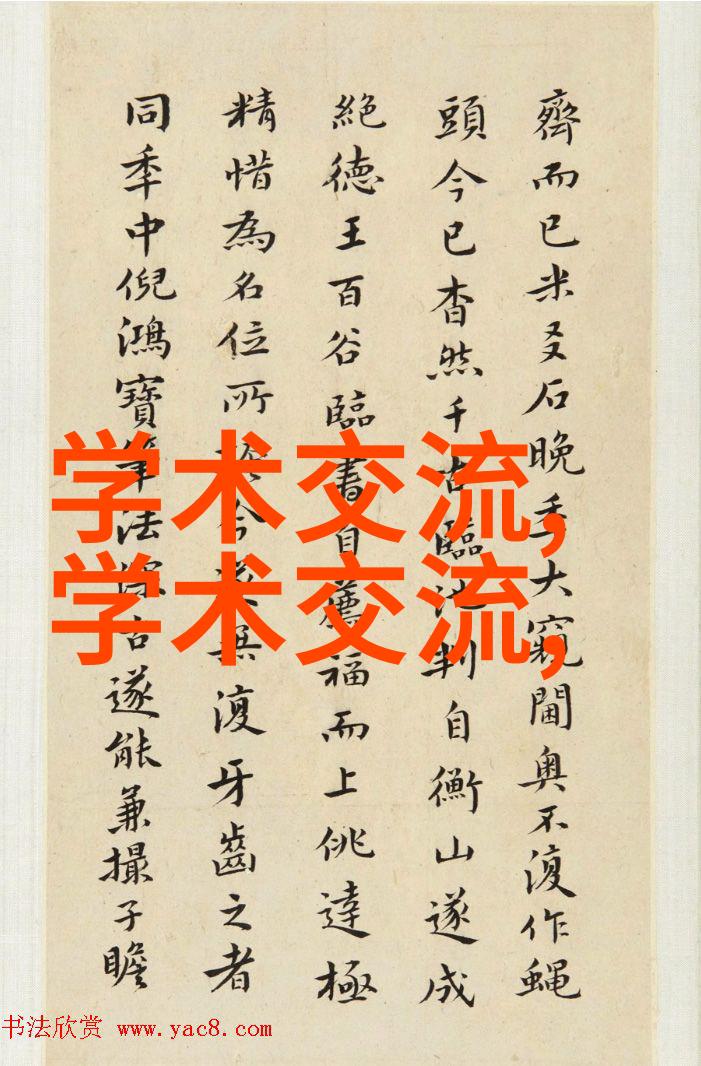 齊而已米友石晚秊大窺閫奥不復作蝇
頭今已杳然千古臨池判自衡山遂成
絶德王百谷臨書自薦福而上佻達極
精惜為名位所今無復牙齒之者
同秊中倪鴻寶筆法深古遂能兼撮子瞻
学术交流,
学术交流,
书法欣赏 www.yac8.com